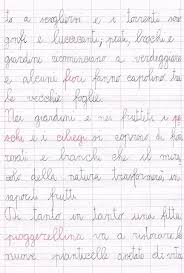 to a sciogliersi e i torrenti sono
gonfi e luccicanti; prati, boschi e
giardini cominciano a verdeggiare
e alcuni fiori fanno capolino tra
le vecchie foglie.
Nei giardini e nei frutteti i pe
schi e i ciliegi si coprono di fio
ri e bianchi che il mira
colo della natura trasformerà in
saporiti frutti.
Di tanto in tanto una fitta
pioggerellina va a ristorare le
nuove pianticelle assetate di vita